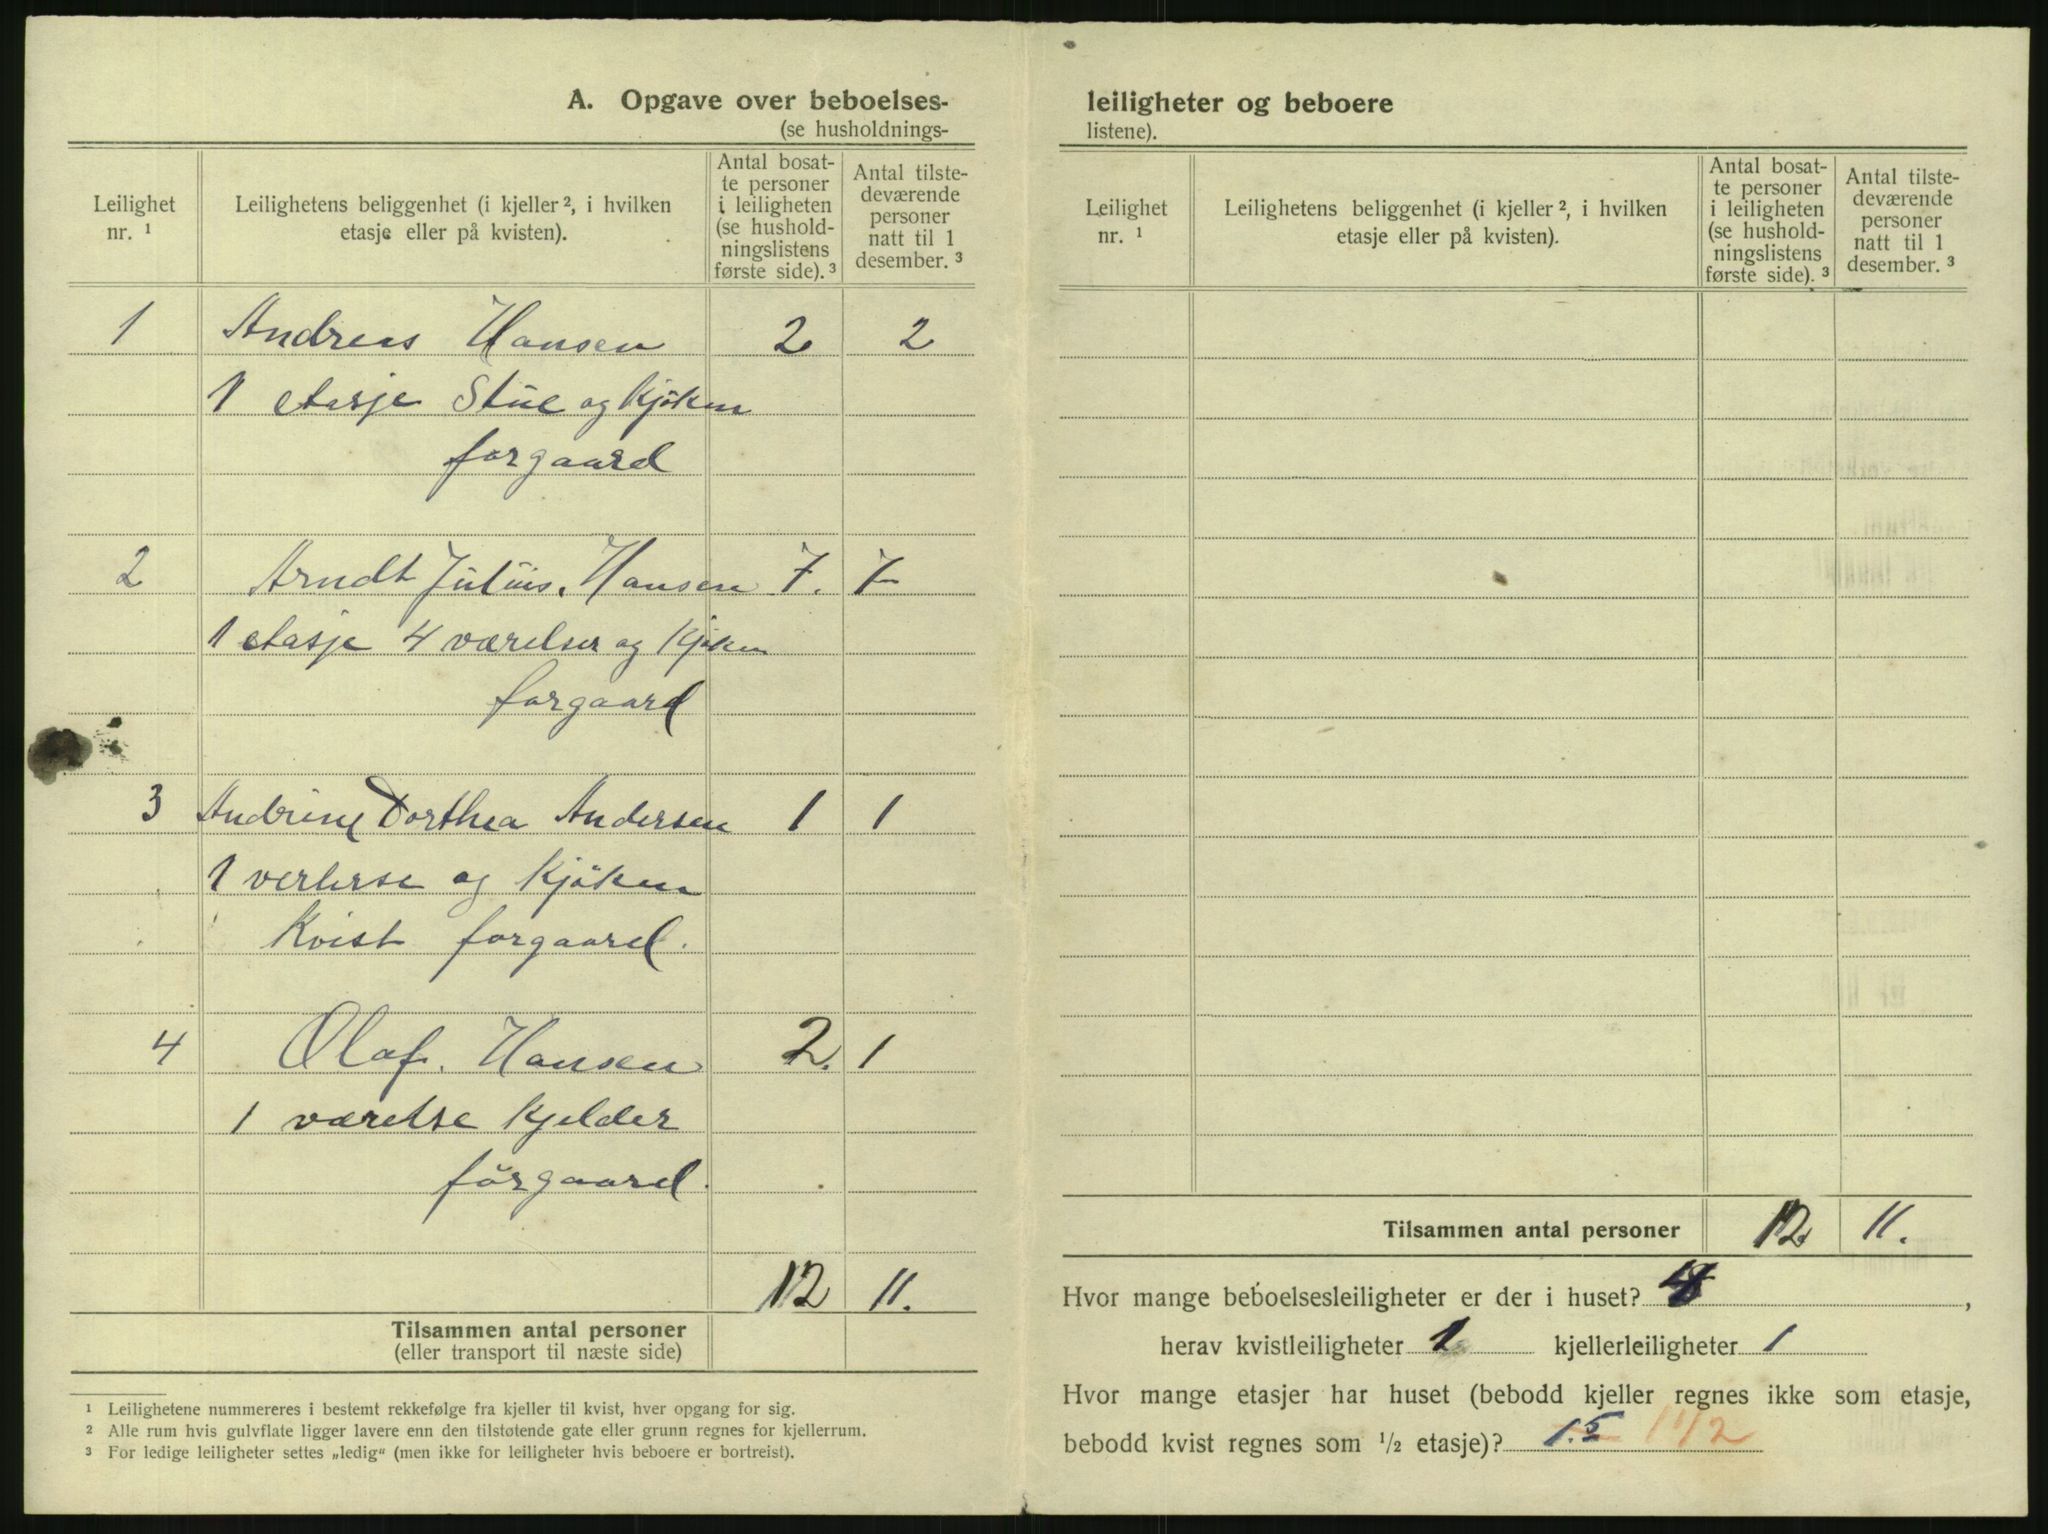 A. Opgave over beboelses-
(se husholdnings-
Leilighet
nr. 1
Leilighetens beliggenhet (i kjeller 2, i hvilken
etasje eller på kvisten).
Antal bosat-
te personer
i leiligheten
(se hushold-
ningslistens
første side). 3
Antal tilste-
deværende
personer
natt til 1
desember. 3
1 Andreas Hansen 2 2
1 etasje Stue og Kjöken
forgaard
2 Arndt Julius. Hansen 7. 7
1 etasje 4 værelser og Kjöken
forgaard
3 Andrine Dorthea Andersen 1 1
1 verlerse og Kjöken
Kvist forgaard.
4 Olaf. Hansen 2. 1
1 værelse Kjelder
forgaard.
12 11.
Tilsammen antal personer
(eller transport til næste side)
1 Leilighetene nummereres i bestemt rekkefølge fra kjeller til kvist, hver opgang for sig.
2 Alle rum hvis gulvflate ligger lavere enn den tilstøtende gate eller grunn regnes for kjellerrum.
3 For ledige leiligheter settes „ledig“ (men ikke for leiligheter hvis beboere er bortreist).
leiligheter og beboere
listene).
Leilighet
nr. 1
Leilighetens beliggenhet (i kjeller 2, i hvilken
etasje eller på kvisten).
Antal bosat-
te personer
i leiligheten
(se hushold-
ningslistens
første side). 3
Antal tilste-
deværende
personer
natt til 1
desember. 3
Tilsammen antal personer 12 11.
Hvor mange beboelsesleiligheter er der i huset? 4,
herav kvistleiligheter 1 kjellerleiligheter 1
Hvor mange etasjer har huset (bebodd kjeller regnes ikke som etasje,
bebodd kvist regnes som 1/2 etasje)? 1.5 1 1/2